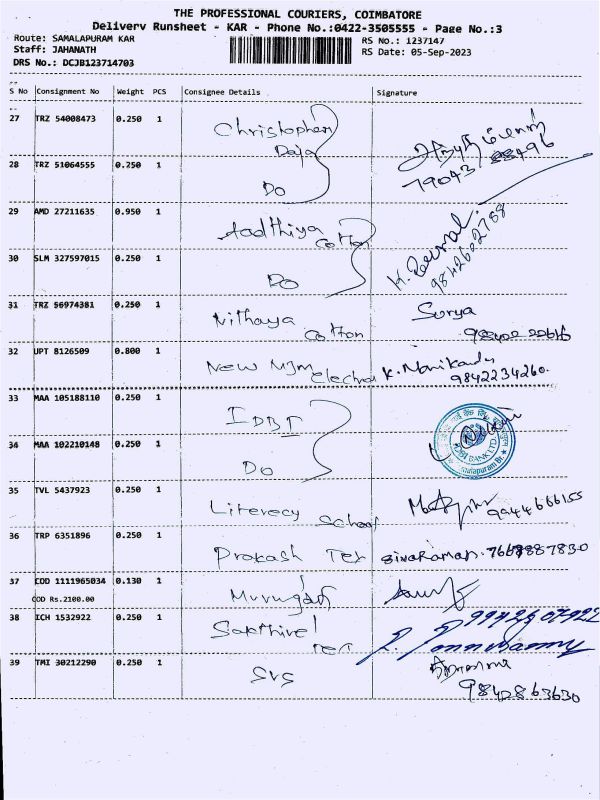 THE PROFESSIONAL COURIERS, COIMBATORE
Delivery Runsheet - KAR - Phone No.:0422-3505555 - Page No.:3
Route: SAMALAPURAM KAR
RS No.: 1237147
Staff: JAHANATH
RS Date: 05-Sep-2023
DRS No.: DCJB123714703
S No Consignment No Weight PCS Consignee Details Signature
27 TRZ 54008473 0.250 1 Christopher
Raja
79043 88496
28 TRZ 51064555 0.250 1 Do
29 AMD 27211635 0.950 1 Aadthiya
Cotton
9842602788
30 SLM 327597015 0.250 1 Do
31 TRZ 56974381 0.250 1 Nithaya
Cotton
Surya
32 UPT 8126509 0.800 1 New Mjm
Electral
K. Manikandan
9842234260.
33 MAA 105188110 0.250 1 IDBI
34 MAA 102210148 0.250 1 Do
IDBI BANK LTD
35 TVL 5437923 0.250 1 Literecy School
9944666155
36 TRP 6351896 0.250 1 Prakash Tex Sivaraman. 7667887830
37 COD 1111965034 0.130 1 Murugan
COD Rs.2100.00
38 ICH 1532922 0.250 1 Sakthivel
Tex
39 TMI 30212290 0.250 1 SVS
9842863630